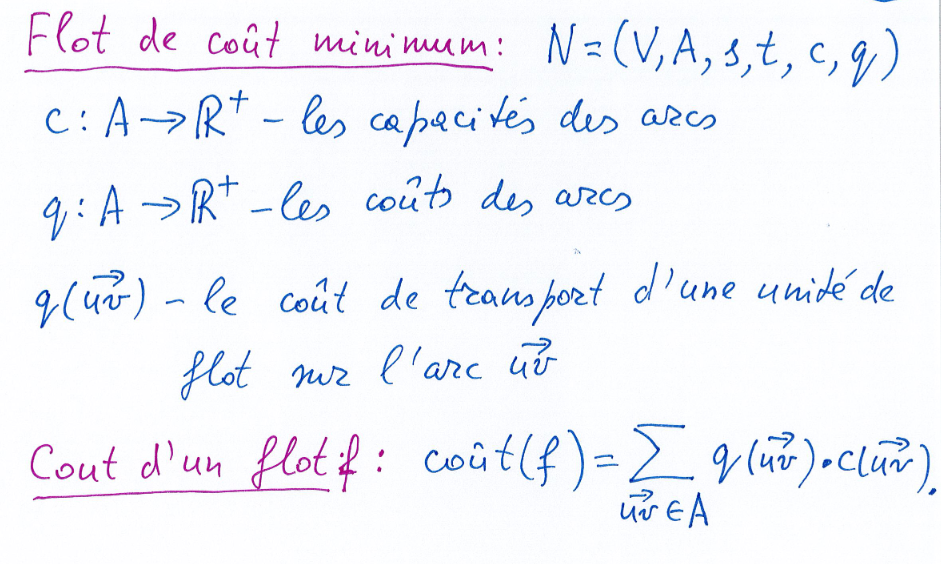 Flot de coût minimum: N=(V,A,s,t,c,q)
c: A→R⁺ – les capacités des arcs
q: A→R⁺ – les coûts des arcs
q(u⃗v⃗) – le coût de transport d'une unité de
flot sur l'arc u⃗v⃗
Cout d'un flot f: coût(f)=∑ q(u⃗v⃗)•c(u⃗v⃗).
u⃗v⃗∈A